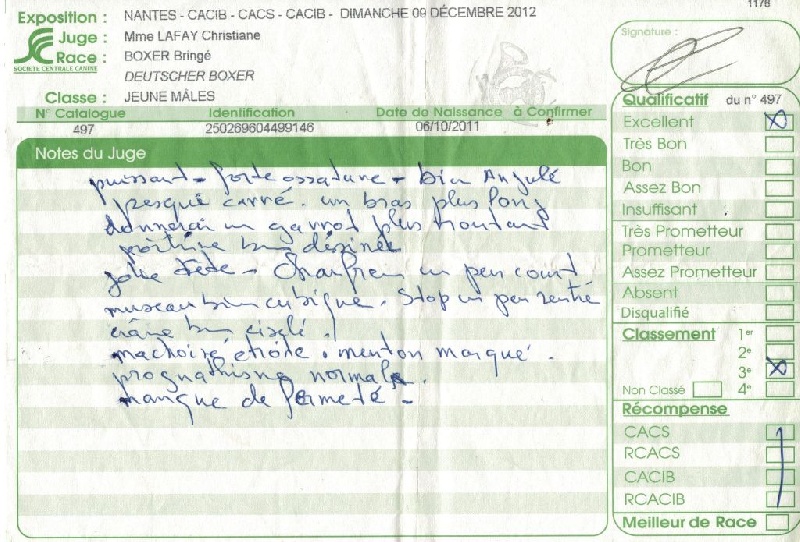 1178
Exposition : NANTES - CACIB - CACS - CACIB - DIMANCHE 09 DÉCEMBRE 2012
Juge : Mme LAFAY Christiane
Race : BOXER Bringé
SOCIÉTÉ CENTRALE CANINE
DEUTSCHER BOXER
Classe : JEUNE MÂLES
N° Catalogue Identification Date de Naissance à Confirmer
497 250269604499146 06/10/2011
Notes du Juge
puissant - forte ossature - bien Angulé
presque carré. un bras plus long
donnerai un garrot plus
poitrine bien désinée
jolie tête - Chanfrein un peu court
museau bien cubique. Stop un peu rentré
crâne bien ciselé.
machoire étroite. menton marqué.
prognathisme normale.
manque de fermeté -
Signature :
Qualificatif du n° 497
Excellent
Très Bon
Bon
Assez Bon
Insuffisant
Très Prometteur
Prometteur
Assez Prometteur
Absent
Disqualifié
Classement 1er
2e
3e
Non Classé 4e
Récompense
CACS
RCACS
CACIB
RCACIB
Meilleur de Race